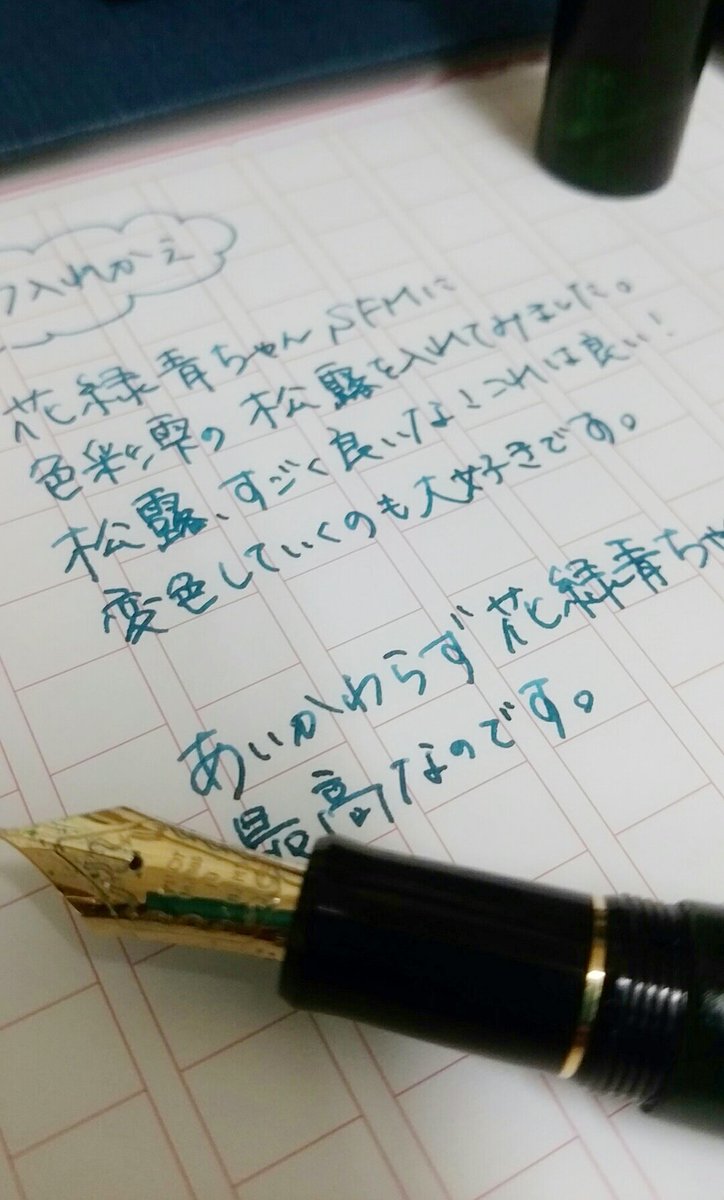 入れかえ
花緑青ちゃんSFMに
色彩雫の松露を入れてみました。
松露、すごく良いな！これは良い！
変色していくのも大好きです。
あいかわらず花緑青ちゃ
最高なのです。